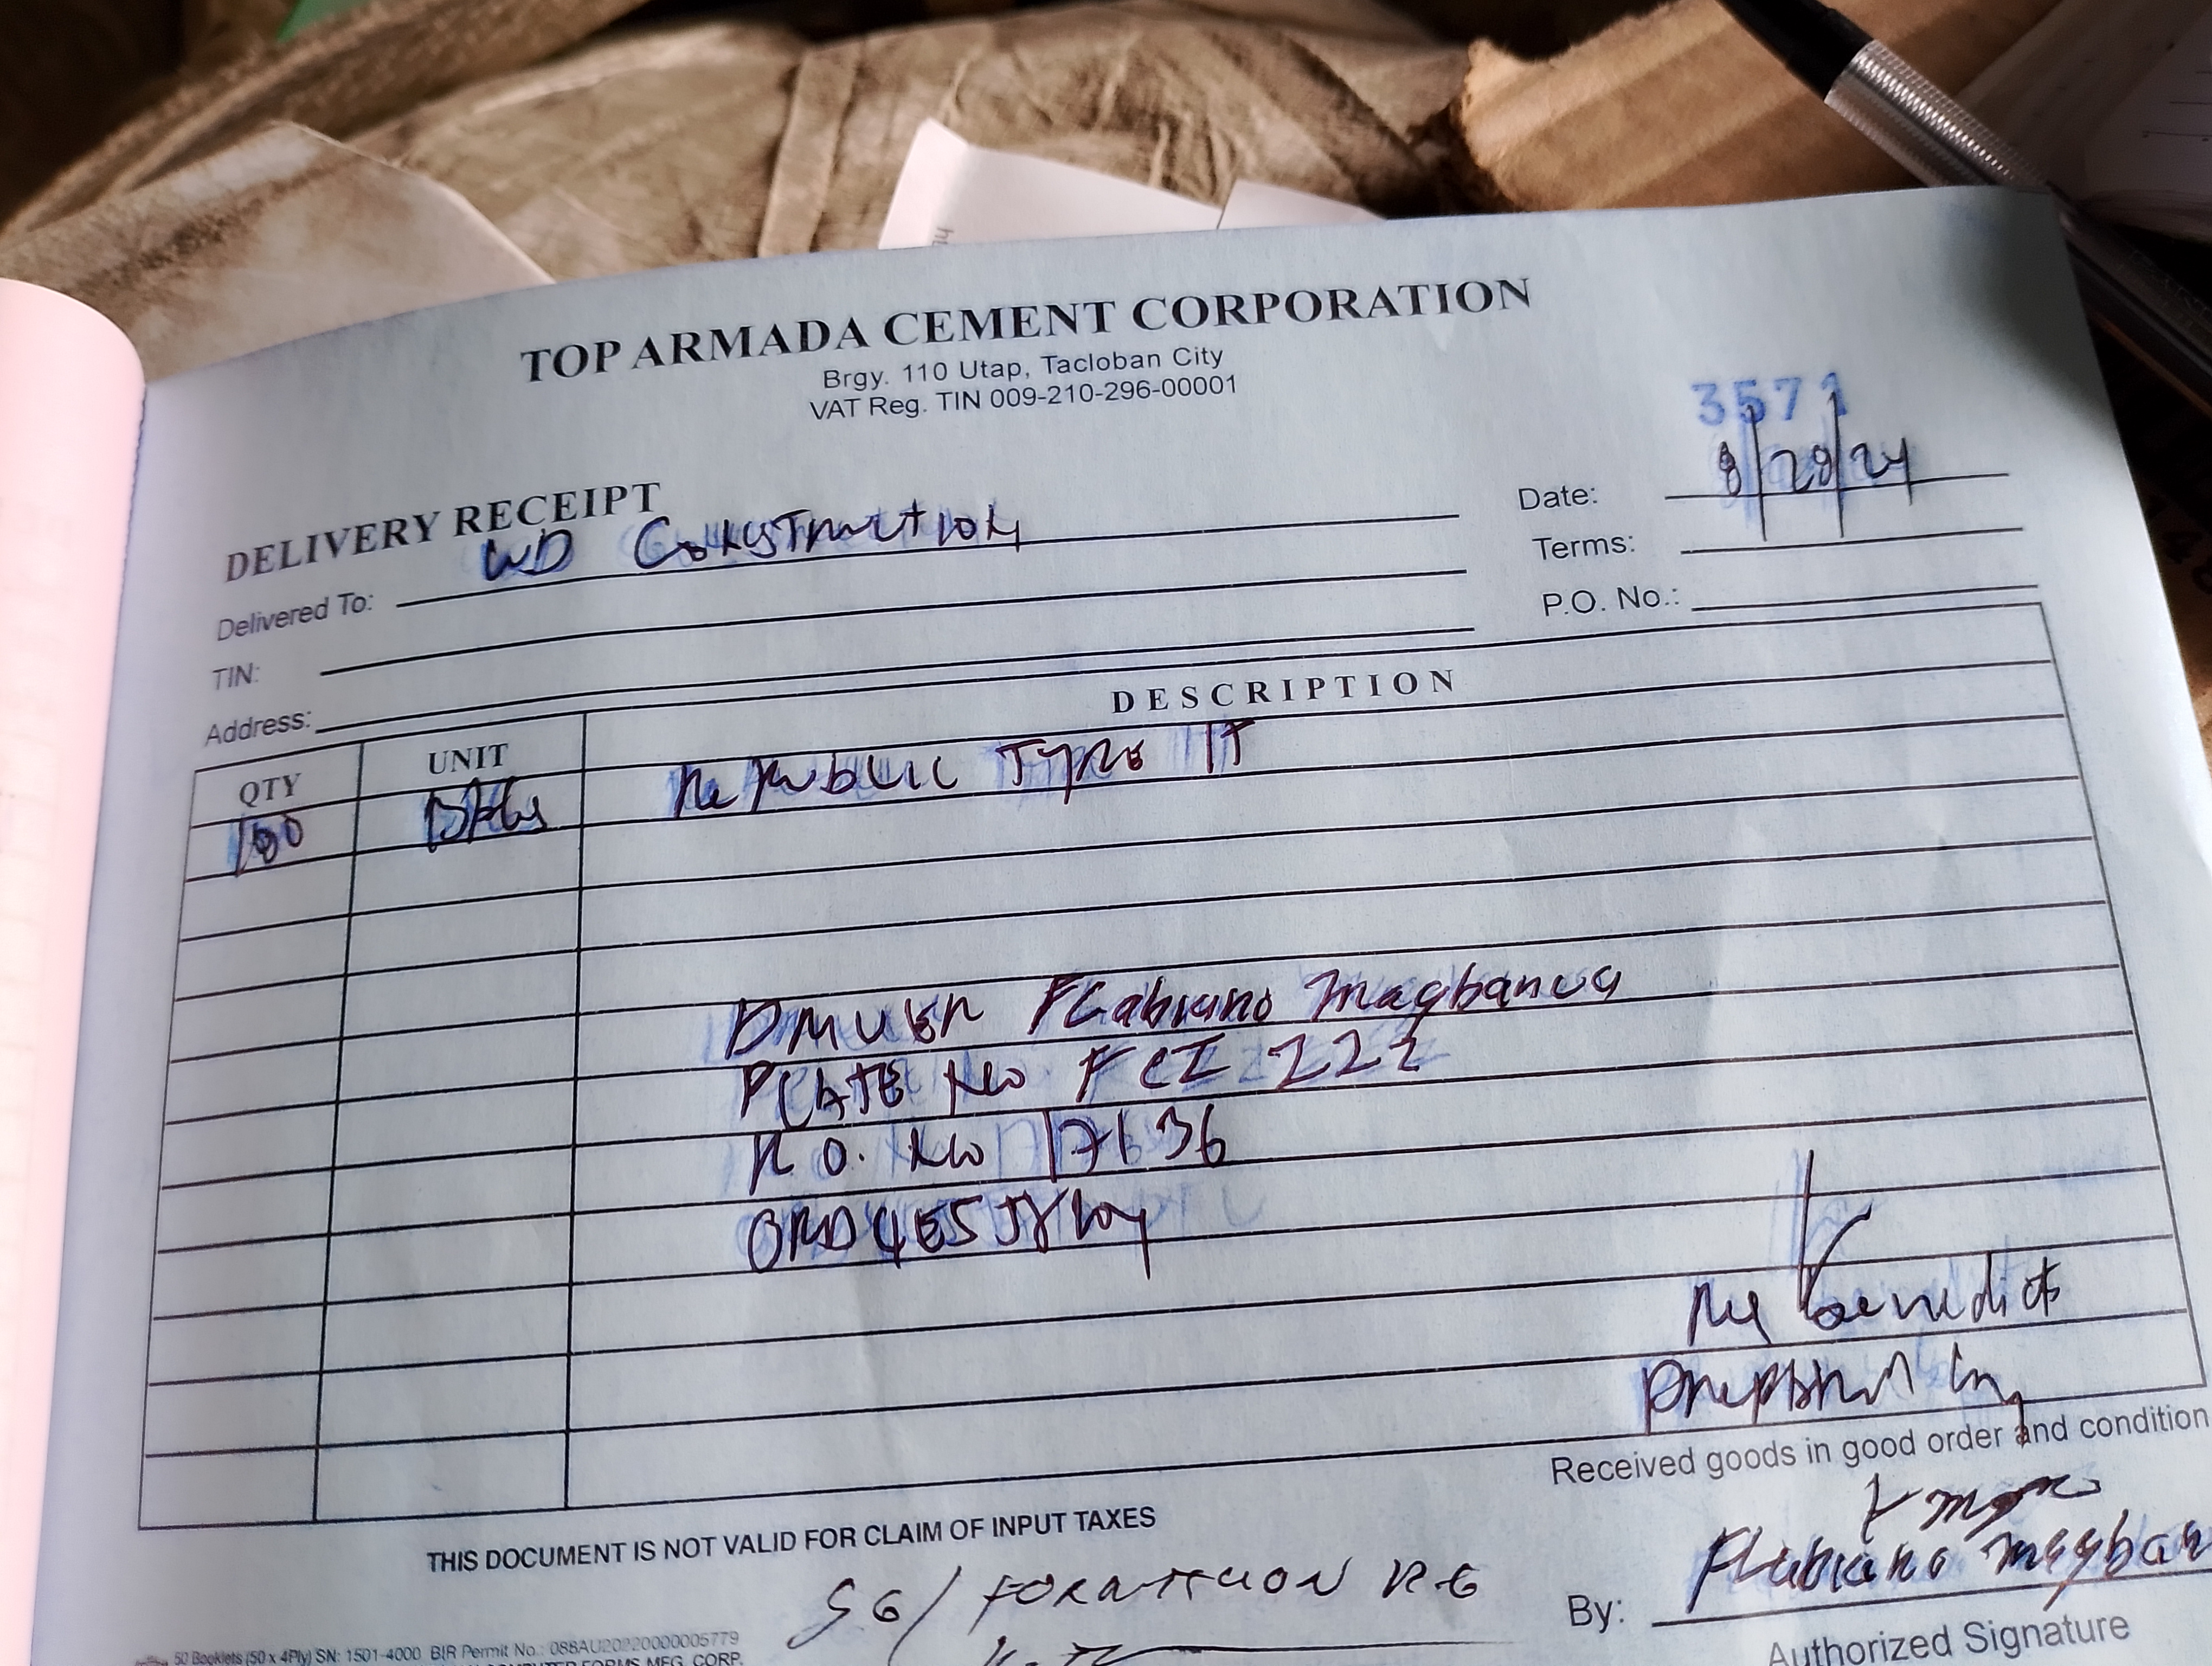 TOP ARMADA CEMENT CORPORATION
Brgy. 110 Utap, Tacloban City
VAT Reg. TIN 009-210-296-00001
3571
DELIVERY RECEIPT
Date: 8/28/24
Delivered To: WD Construction
Terms:
TIN:
P.O. No.:
Address:
QTY UNIT DESCRIPTION
100 BAGS Republic Type 1T
DRIVER Flabiano Magbanua
PLATE No FCI 222
R.O. No 17636
Benedicto
Received goods in good order and condition
THIS DOCUMENT IS NOT VALID FOR CLAIM OF INPUT TAXES
By: Flabiano Magban
SG/
Authorized Signature
50 Booklets (50 x 4Ply) SN: 1501-4000 BIR Permit No.: 088AU20220000005779
COMPUTER FORMS MFG. CORP.